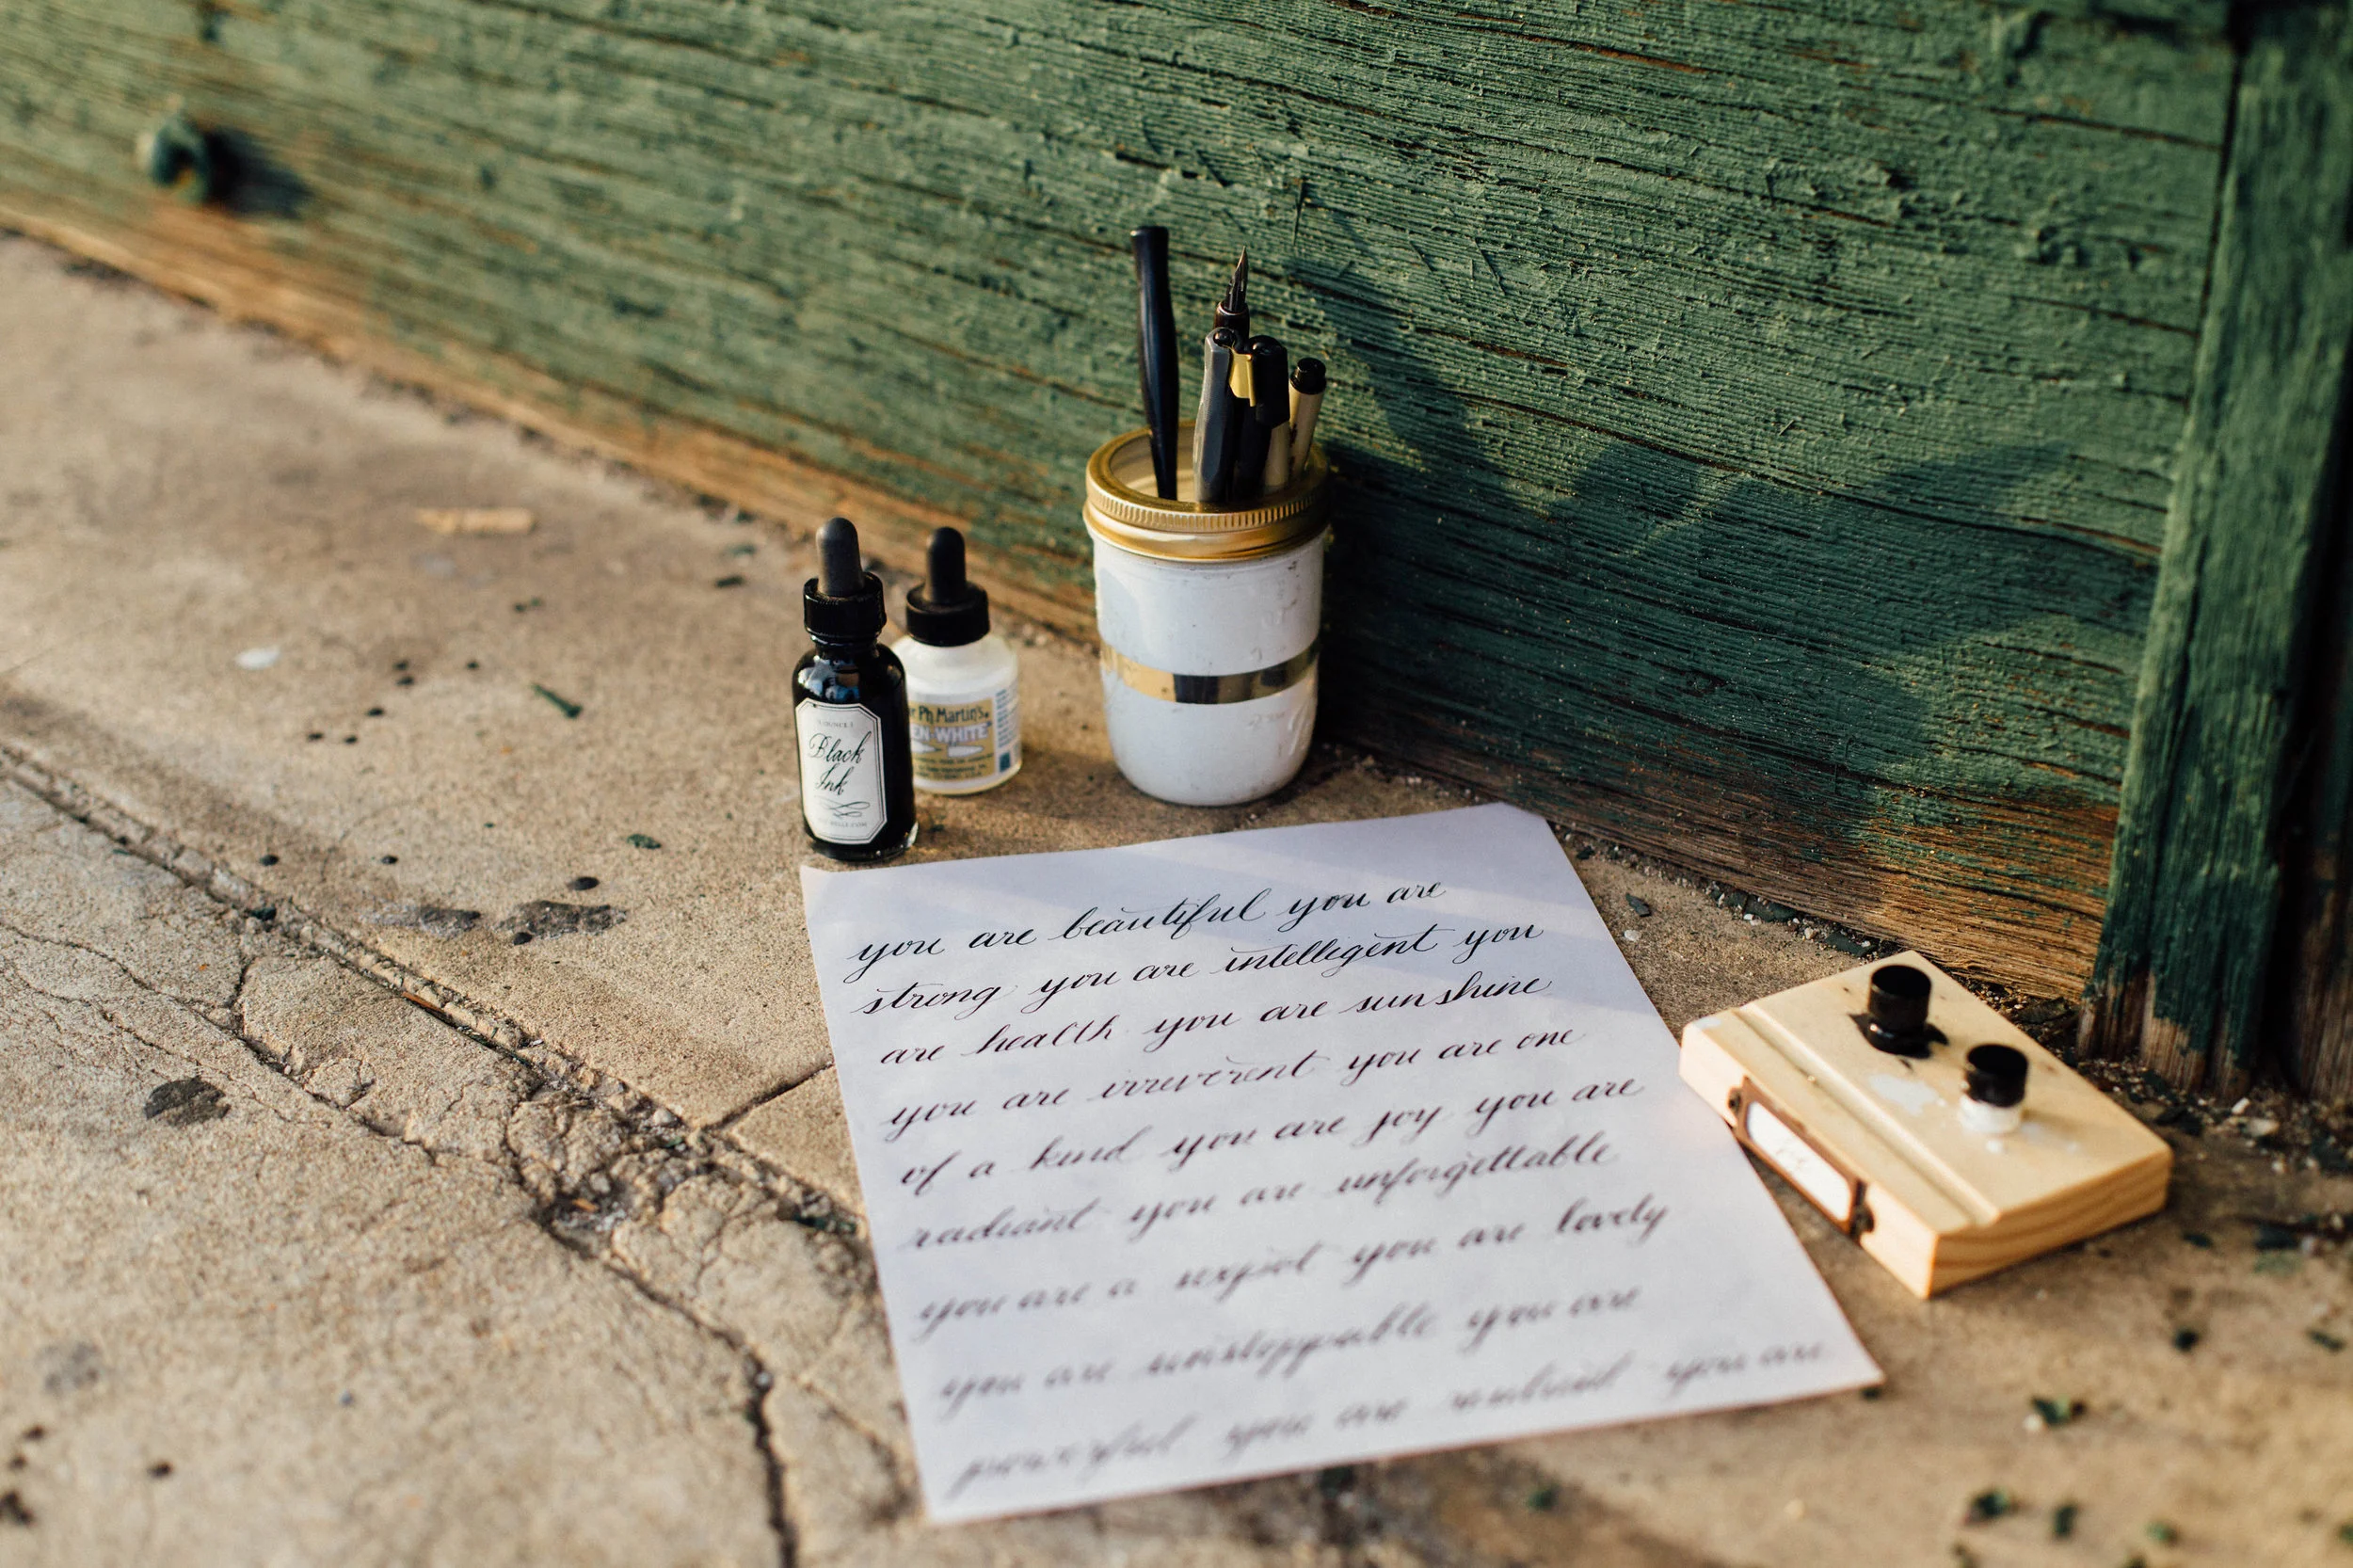 Black
Ink
Ph. Martin's
EN WHITE
you are beautiful you are
strong you are intelligent you
are health you are sunshine
you are irreverent you are one
of a kind you are joy you are
radiant you are unforgettable
you are a you are lovely
you are unstoppable you are
powerful you are you are